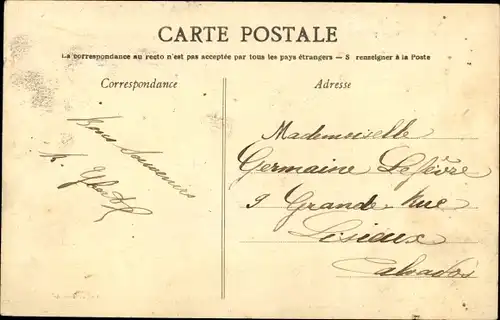 CARTE POSTALE
La correspondance au recto n'est pas acceptée par tous les pays étrangers — S renseigner à la Poste
Correspondance
Adresse
Bons Souvenirs
Mademoiselle
Germaine Lefèvre
9 Grande Rue
Lisieux
Calvados